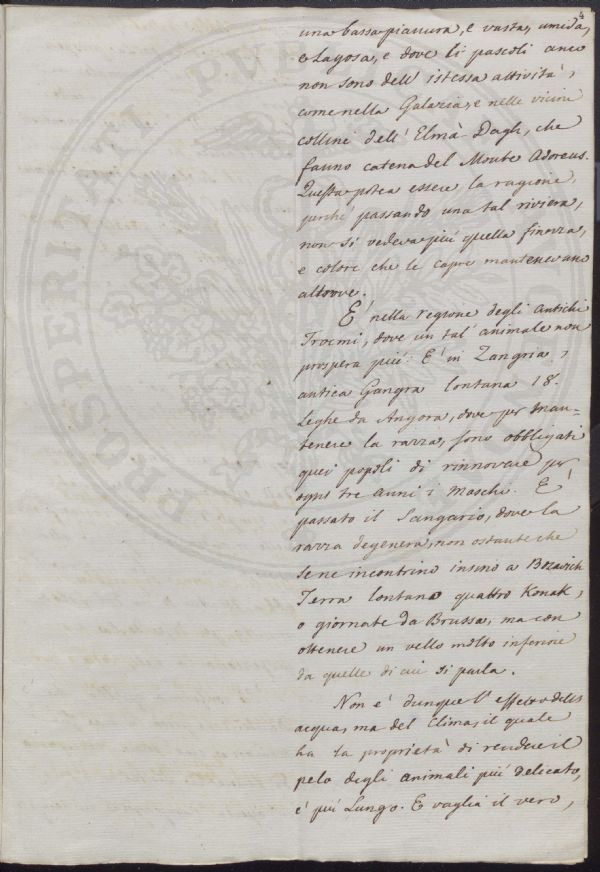 4
una bassa pianura, e vasta, umida,
e lagosa, e dove li pascoli anco
non sono dell' istessa attività,
come nella Galazia, e nelle vicine
colline dell' Elmà-Dagh, che
fanno catena del Monte Adoreus.
Questa potea essere la ragione,
perchè passando una tal riviera,
non si vedeva più quella finezza,
e colore che le capre mantenevano
altrove.
E' nella regione degli antichi
Trocmi, dove un tal' animale non
prospera più: E' in Zangria,
antica Gangra lontana 18.
Leghe da Angora, dove per man-
tenere la razza, sono obbligati
quei popoli di rinnovare per
ogni tre anni i maschi. E'
passato il Sangario, dove la
razza degenera, non ostante che
se ne incontrino insino a
Terra lontana quattro Konak,
o giornate da Brussa, ma con
ottenere un vello molto inferiore
da quelle di cui si parla.
Non è dunque l' effetto dell'
acqua, ma del Clima, il quale
ha la proprietà di rendere il
pelo degli animali più delicato,
e più lungo. E vaglia il vero,
PROSPERITATI PUBL